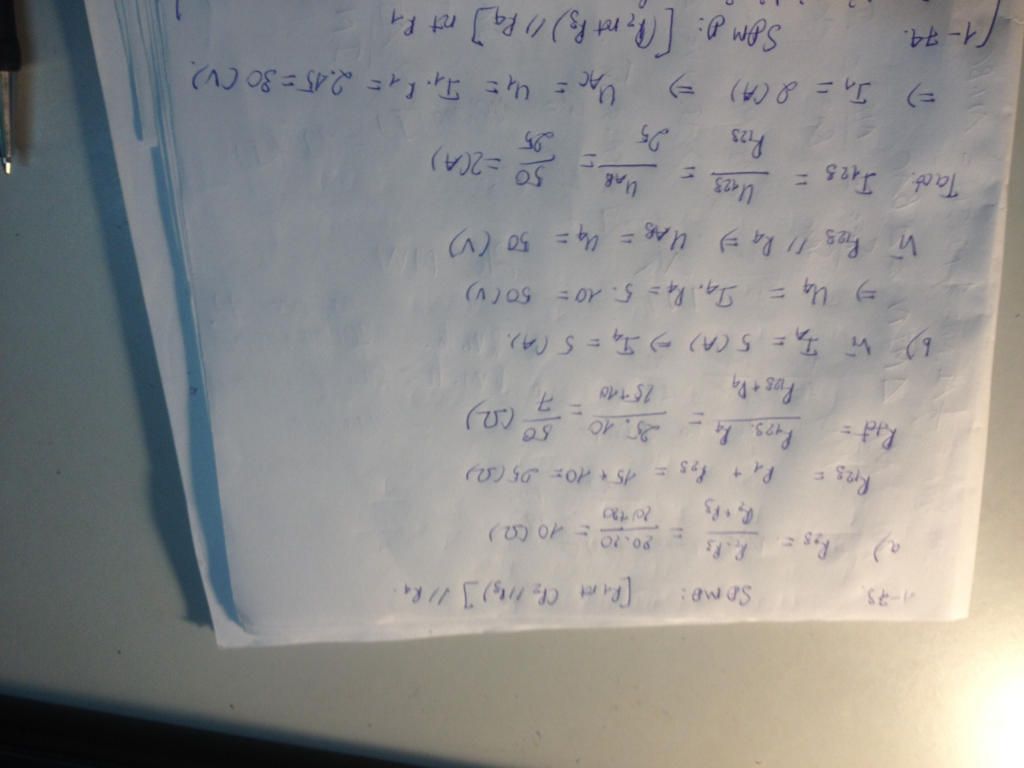 1-73. SĐMĐ: [R1 nt (R2 // R3)] // R4.
a) R23 = R2.R3 / R2+R3 = 20.20 / 20+20 = 10 (Ω)
R123 = R1 + R23 = 15 + 10 = 25 (Ω)
Rtđ = R123.R4 / R123+R4 = 25.10 / 25+10 = 50 / 7 (Ω)
b) Vì IA = 5 (A) ⇒ I4 = 5 (A).
⇒ U4 = I4.R4 = 5.10 = 50 (V)
Vì R123 // R4 ⇒ UAB = U4 = 50 (V)
Ta có: I123 = U123 / R123 = UAB / 25 = 50 / 25 = 2 (A)
⇒ I1 = 2 (A) ⇒ UAC = U1 = I1.R1 = 2.15 = 30 (V).
1-74. SĐMĐ: [(R2 nt R3) // R4] nt R1